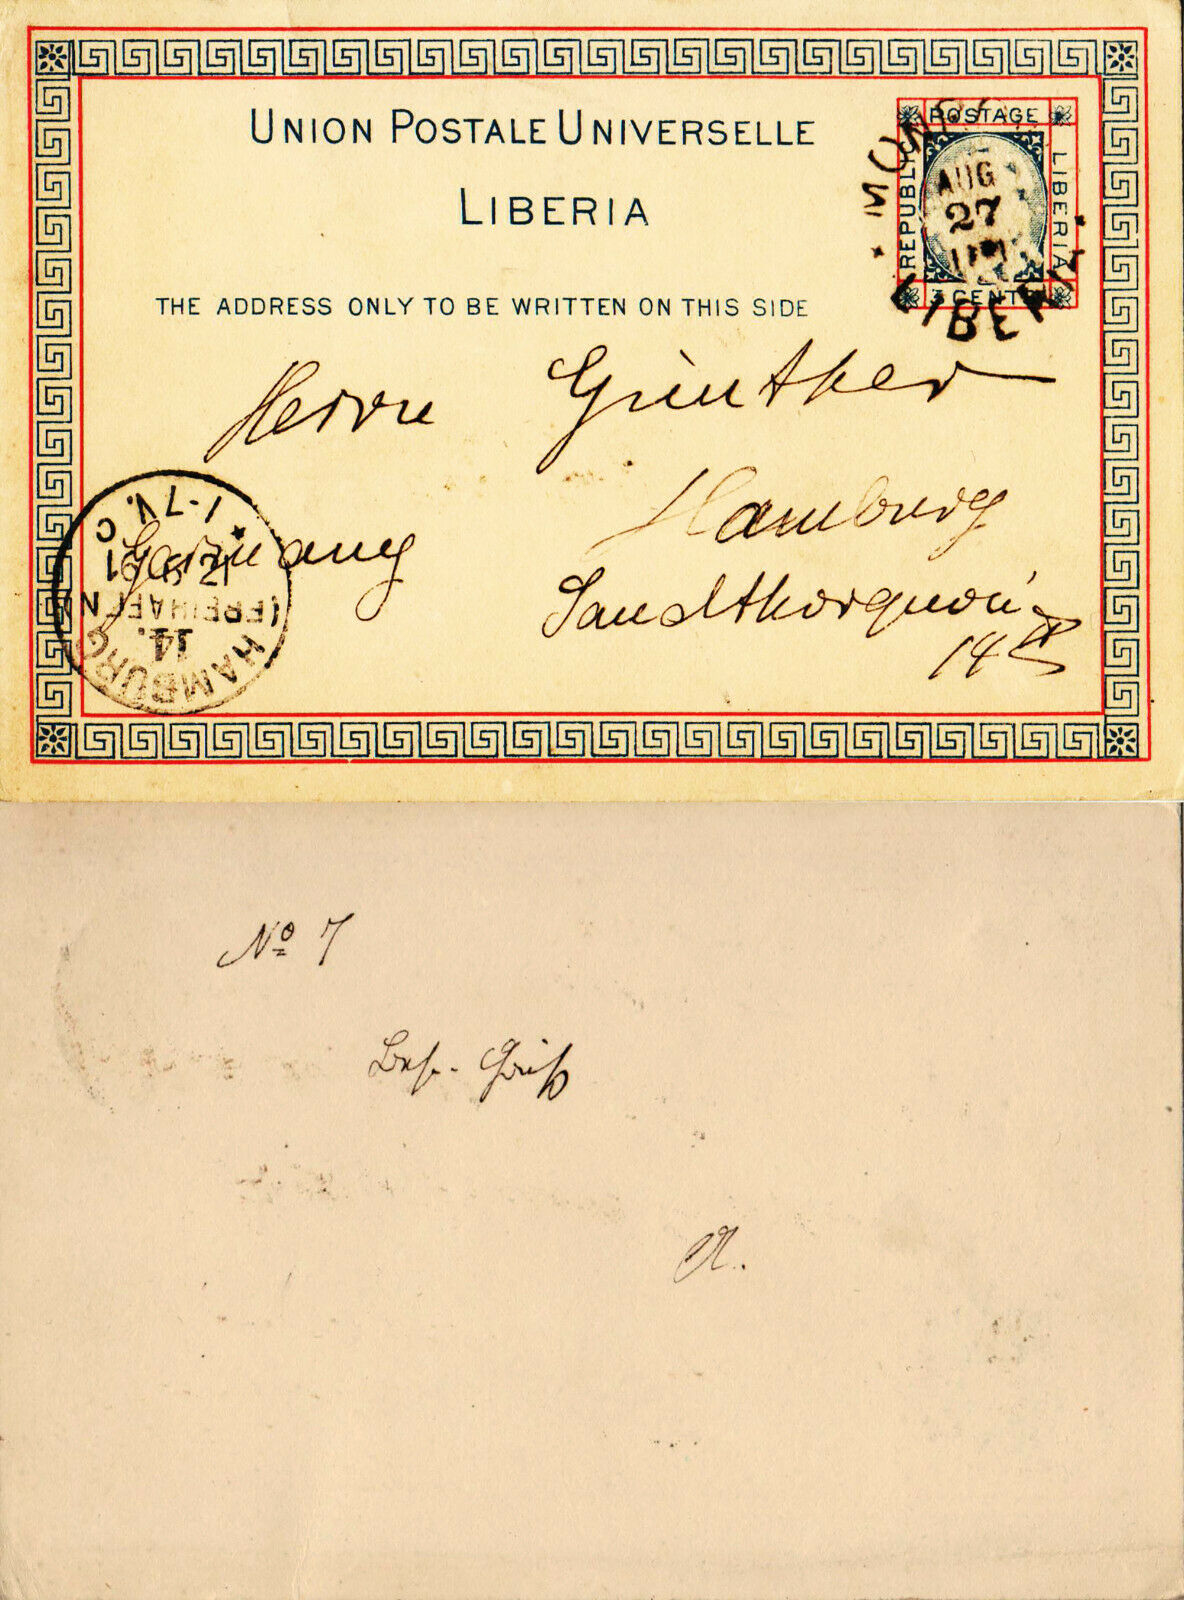 UNION POSTALE UNIVERSELLE
LIBERIA
THE ADDRESS ONLY TO BE WRITTEN ON THIS SIDE
POSTAGE
REPUBLIC
LIBERIA
3 CENTS
AUG
27
LIBERIA
Herrn Günther
Hamburg
Germany
Sandthorquai
14
HAMBURG
14.
(FREIHAFEN)
12.9.91
1-7V.
C
No 7
A.